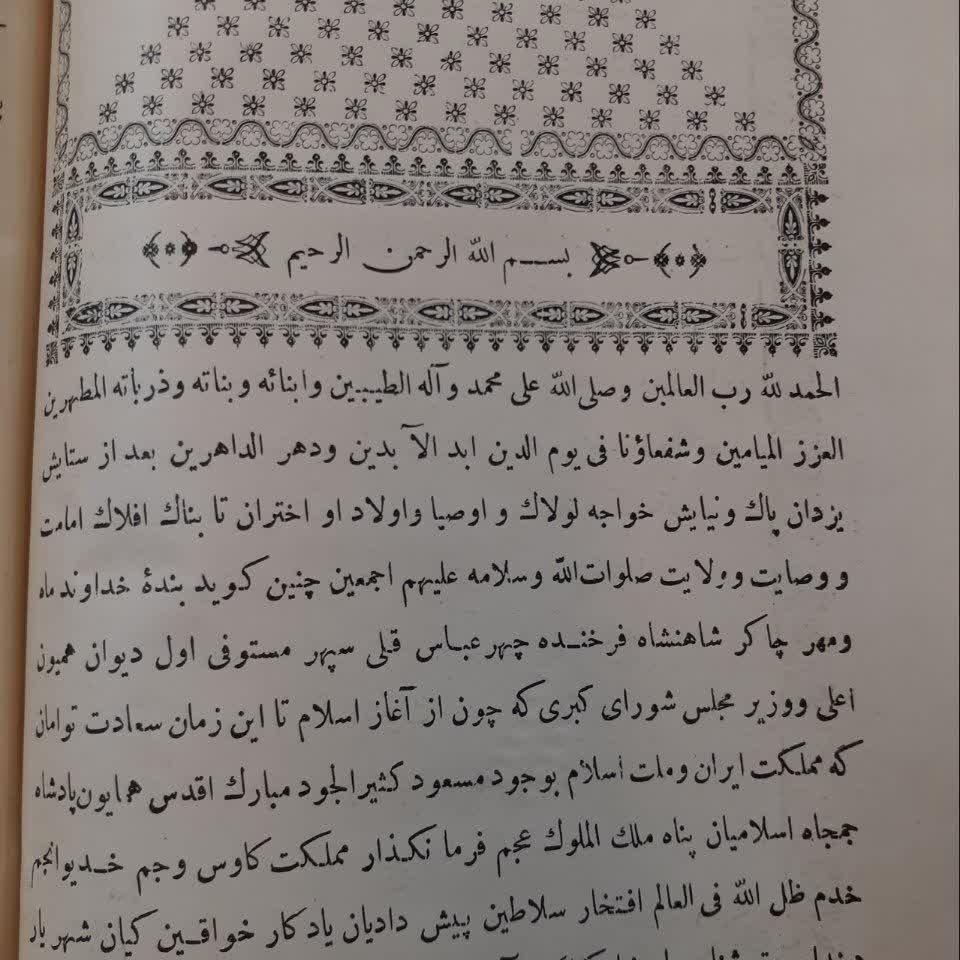 بســم الله الرحمن الرحیم
الحمد لله رب العالمین وصلی الله علی محمد وآله الطیبین وابنائه وبناته وذریاته المطهرین
العزز المیامین وشفعاؤنا فی یوم الدین ابد الآبدین ودهر الداهرین بعد از ستایش
یزدان پاك ونیایش خواجه لولاك و اوصیا واولاد او اختران تا بناك افلاك امامت
و وصایت وولایت صلوات الله وسلامه علیهم اجمعین چنین کوید بندۀ خداوند ماه
ومهر چاکر شاهنشاه فرخنده چهر عباس قلی سپهر مستوفی اول دیوان همیون
اعلی ووزیر مجلس شورای کبری که چون از آغاز اسلام تا این زمان سعادت توامان
که مملکت ایران وملت اسلام بوجود مسعود کثیر الجود مبارك اقدس همایون پادشاه
جمجاه اسلامیان پناه ملك الملوك عجم فرما نکذار مملکت کاوس وجم خدیو انجم
خدم ظل الله فی العالم افتخار سلاطین پیش دادیان یادکار خواقین کیان شهر یار